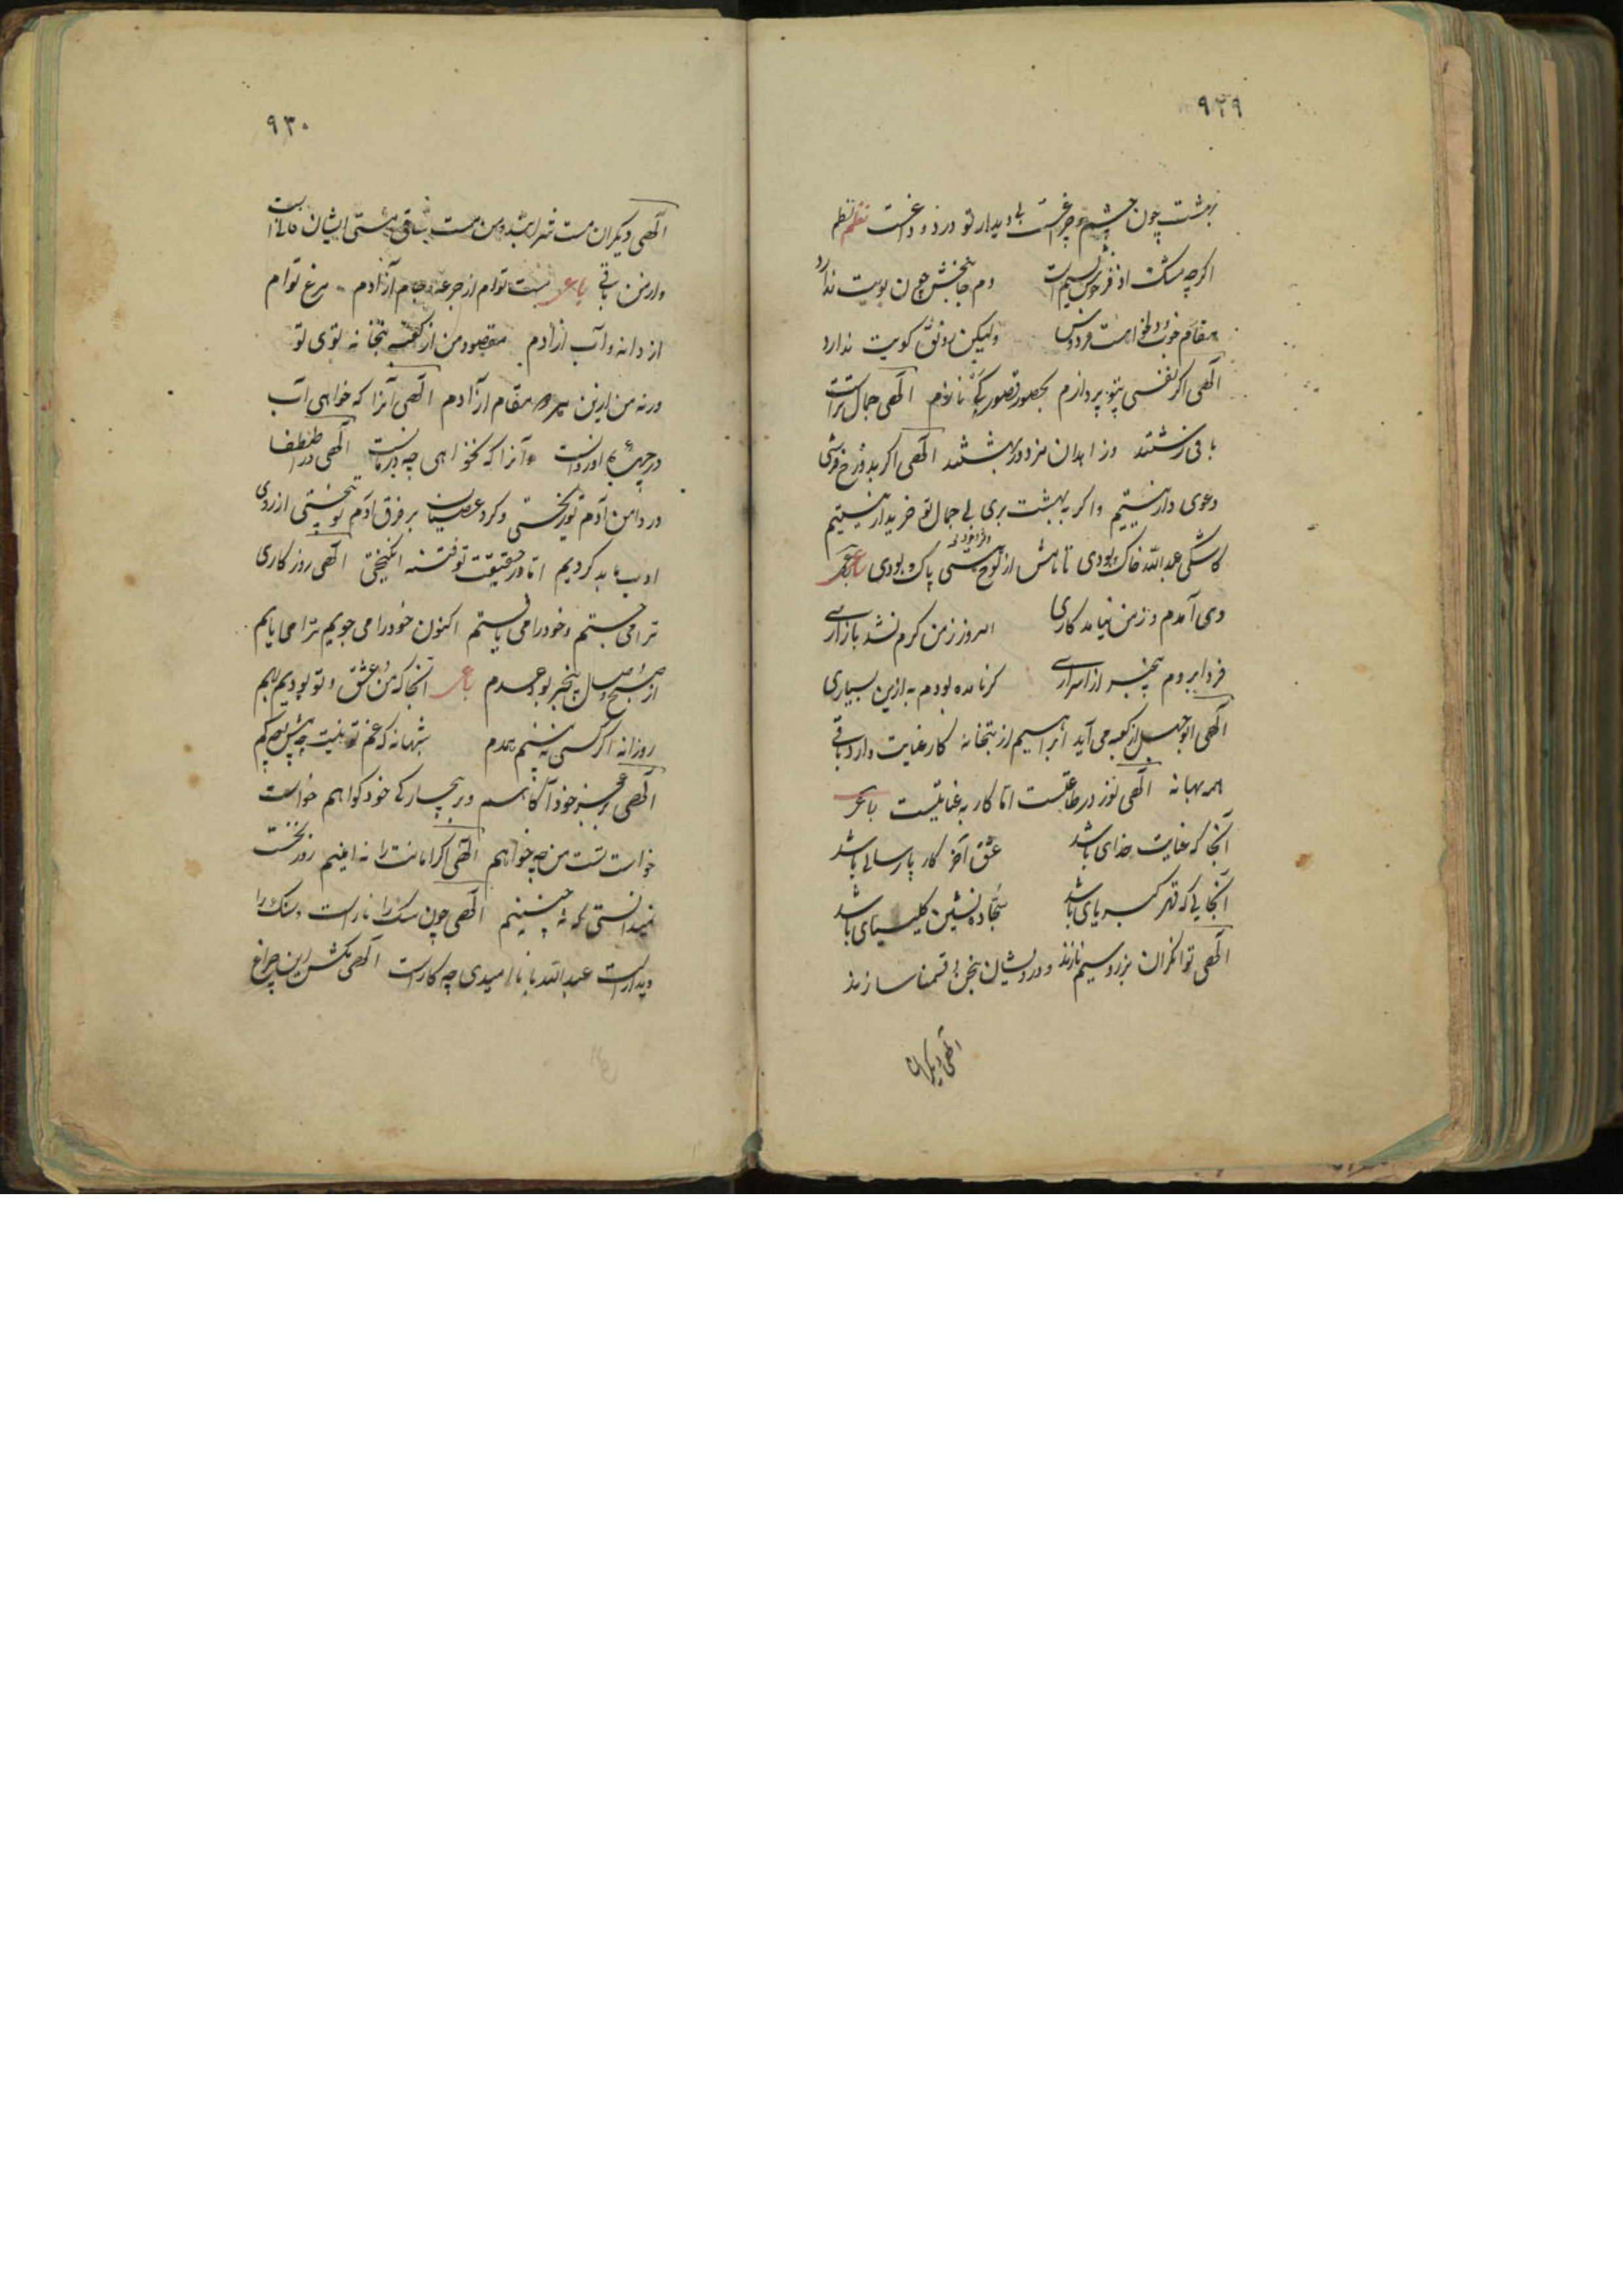 ۹۲۹
بهشت چون چشم و چراغست بی دیدار تو درد و داغست نظم نظم
اگرچه مشک اذفر خوش نسیم است دم جان بخش چون بویت ندارد
مقام خوب و دلخواهست فردوس ولیکن رونق کویت ندارد
الهی اگر نفسی بتو پردازم بحور و قصور کی نازم الهی جمال تراست
باقی زشتند و زاهدان مزدور بهشتند الهی اگر بدوزخ فرستی
دعوی دار نیستیم و اگر به بهشت بری بی جمال تو خریدار نیستیم
کاشکی عبدالله خاک بودی تا نامش از لوح هستی پاک بودی
دی آمدم و ز من نیامد کاری امروز ز من گرم نشد بازاری
فردا بروم بیخبر از اسراری گر نامده بودم به ازین بسیاری
الهی ابوجهل از کعبه می آید ابراهیم از بتخانه کار عنایت دارد باقی
همه بهانه الهی نور در طاعتست اما کار به عنایتست رباعی
آنجا که عنایت خدای باشد عشق آخر کار پارسایی باشد
آنجایی که قهر کبریای باشد سجاده نشین کلیسیای باشد
الهی توانگران بزر و سیم نازند و درویشان بنحن قسمنا سازند
الهی دیگران
۹۳۰
الهی دیگران مست شرابند و من مست ساقی مستی ایشان فانیست
و از من باقی رباعی مست توام از جرعه و جام آزادم مرغ توام
از دانه و آب آزادم مقصود من از کعبه و بتخانه توی تو
ورنه من ازین هر دو مقام آزادم الهی آنرا که خواهی آب
در جوی او روانست و آنرا که نخواهی چه درمانست الهی
در دامن آدم تو ریختی و گرد عصیان بر فرق آدم تو بیختی از روی
ادب ما بد کردیم اما در حقیقت تو فتنه انگیختی الهی روزگاری
ترا می جستم و خود را می یافتم اکنون خود را می جویم ترا می یابم
از صبح وصال بیخبر بود عدم رباعی آنجا که من و عشق و تو بودیم بهم
روزانه اگر کسی نه بینم همدم شبهانه که غم تو نیست
الهی بر عجز خود آگاهم و بر بیچارگی خود گواهم خواست
خواست تست من چه خواهم الهی اگر امانت را نه امینم روز نخست
میدانستی که نه چنینم الهی چون سگ را بار است و سنگ را
دیدارست عبدالله با ناامیدی چه کارست الهی بکش این چراغ